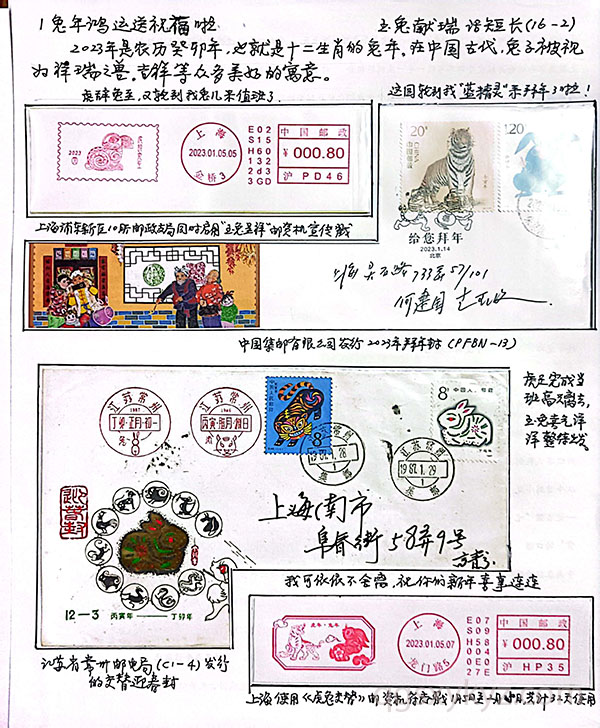 1 兔年鸿运送祝福啦
玉兔献瑞话短长(16-2)
2023年是农历癸卯年,也就是十二生肖的兔年,在中国古代,兔子被视
为祥瑞之兽,吉祥等众多美好的寓意。
虎辞兔至,又轮到我兔儿来值班了
这回轮到我"蓝精灵"来拜年了啦!
2023
上海
2023.01.05.05
金桥3
E02
S15
H60
132
2d3
3GD
中国邮政
¥ 000.80
沪 PD46
20分
1.20
给您拜年
2023.1.14
北京
上海浦东新区10所邮政支局同时启用"玉兔呈祥"邮资机宣传戳
上海灵石路733弄57/101
何建国
中国集邮有限公司发行2023年拜年封(PFBN-13)
江苏常州
1987
丁卯·正月·初一
兔
江苏常州
1986
丙寅·腊月·廿九日
虎
8分
中国人民邮政
8分
江苏常州
1987.1.28
江苏常州
1987.1.29
虎兄完成当
班高兴离去,
玉兔喜气洋
洋整体出发。
迎春封
上海(南市
阜春街58弄9号
12-3
丙寅年——丁卯年
江苏省常州邮电局(C1-4)发行
的交替迎春封
我可依依不舍离,祝你们新年喜事连连
虎年·兔年
上海
2023.01.05.07
龙门路5
E07
S09
H58
004
0E0
27E
中国邮政
¥ 000.80
沪 HP35